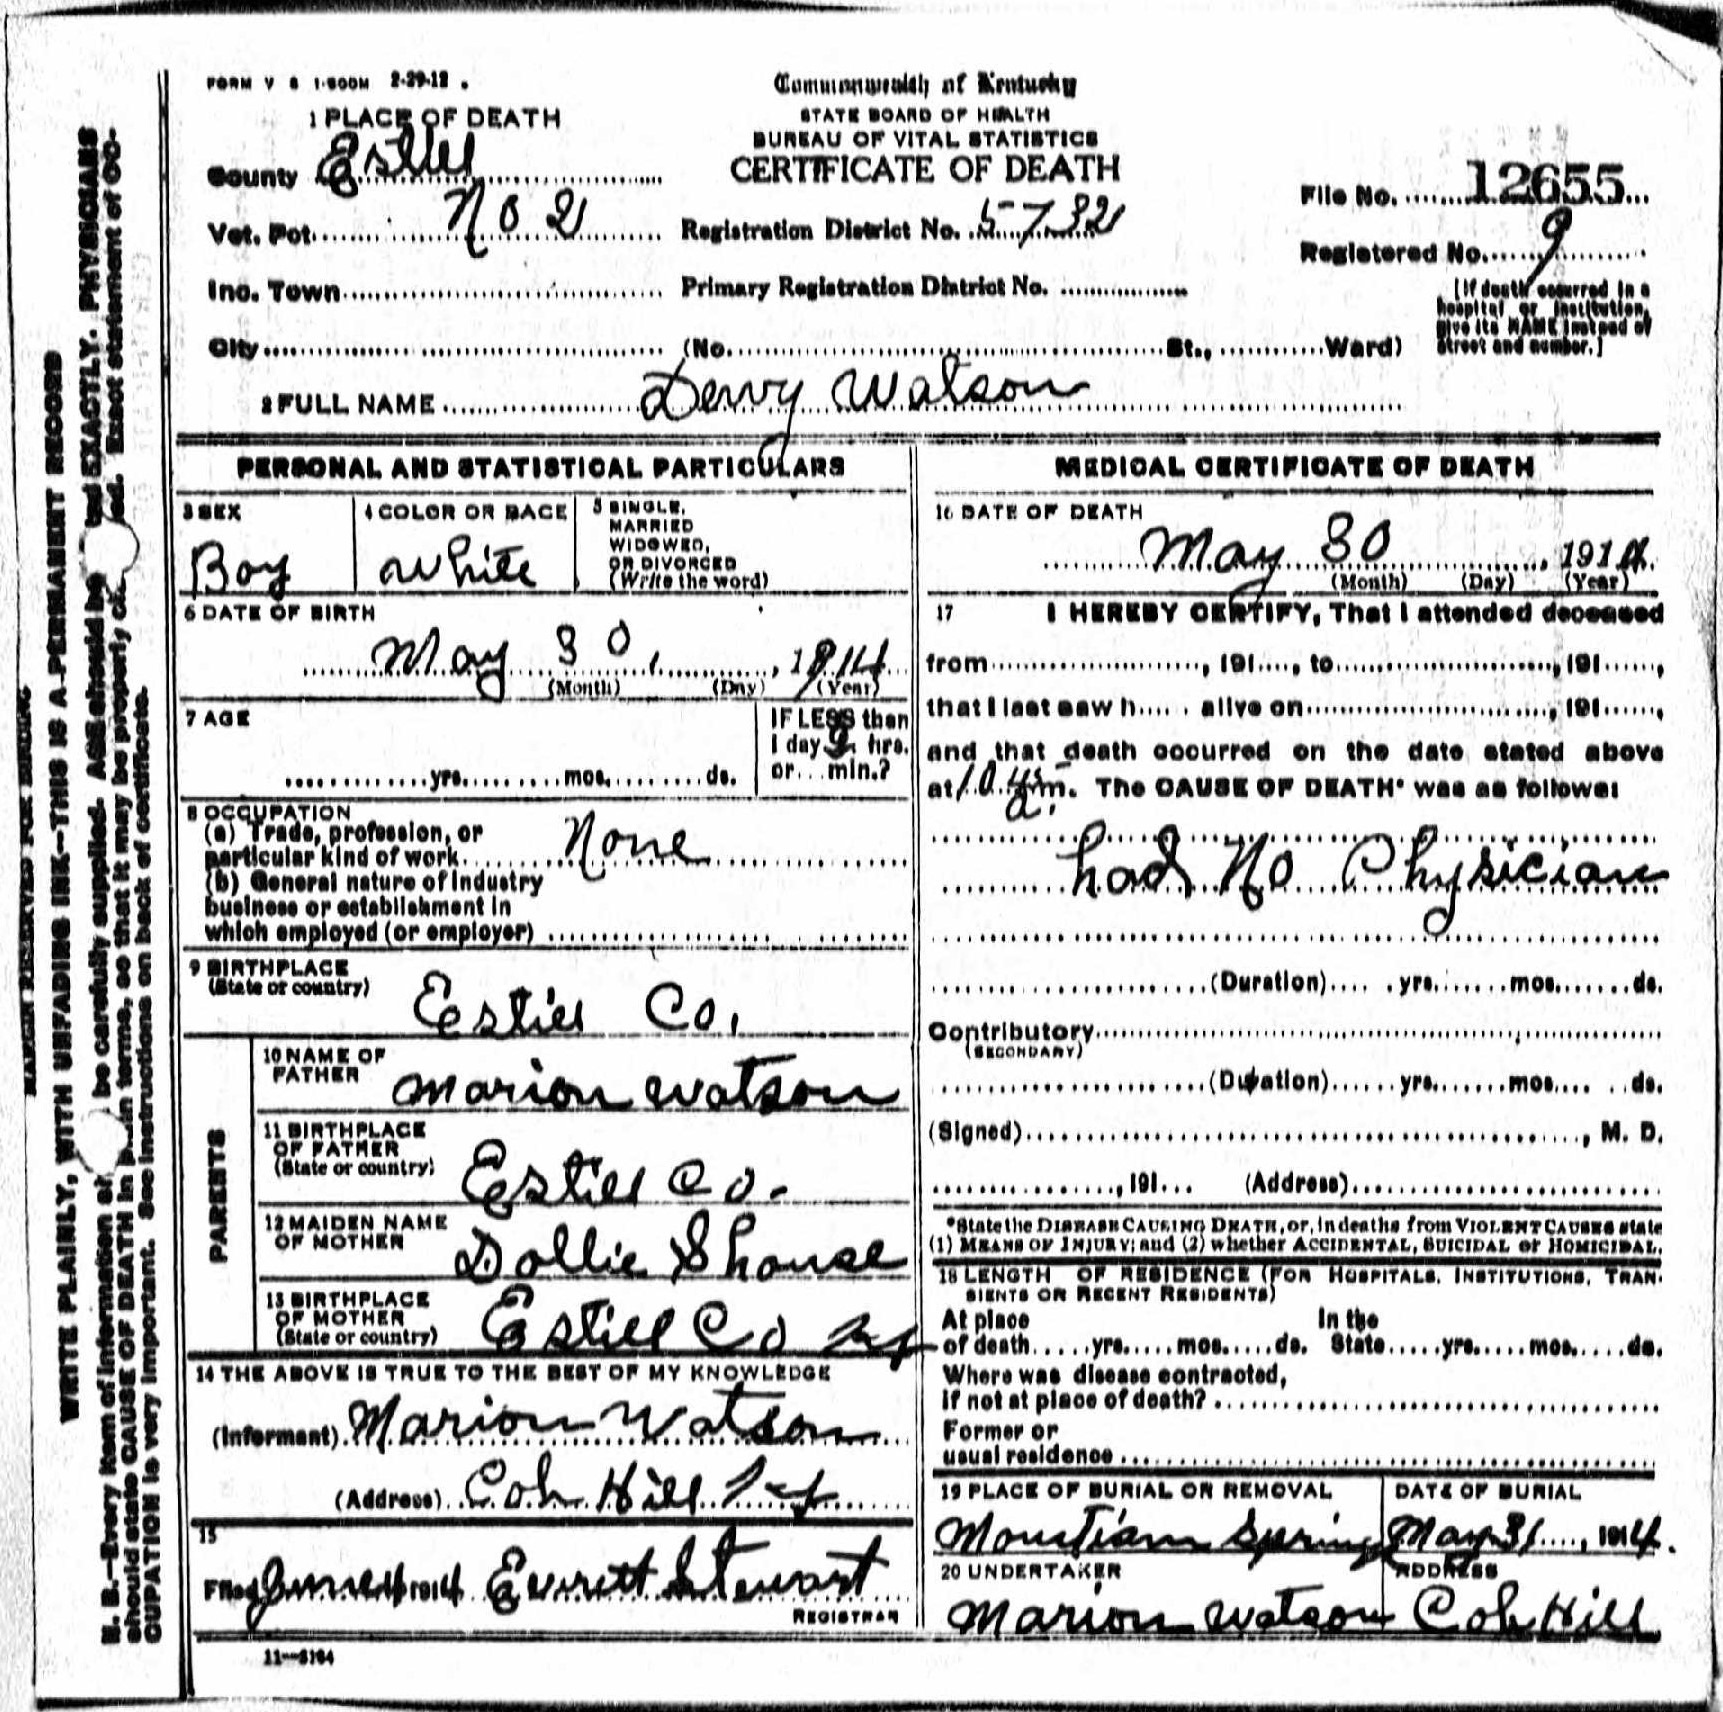 FORM V S 1-500M 2-29-12
Commonwealth of Kentucky
STATE BOARD OF HEALTH
BUREAU OF VITAL STATISTICS
CERTIFICATE OF DEATH
1 PLACE OF DEATH
County Estill
Vot. Pct. No 2
Inc. Town
City (No. St., Ward)
Registration District No. 5732
Primary Registration District No.
File No. 12655
Registered No. 9
[If death occurred in a
hospital or institution,
give its NAME instead of
street and number.]
2 FULL NAME Dewy Watson
PERSONAL AND STATISTICAL PARTICULARS
3 SEX
Boy
4 COLOR OR RACE
White
5 SINGLE,
MARRIED
WIDOWED,
OR DIVORCED
(Write the word)
6 DATE OF BIRTH
May 30, 1914
(Month) (Day) (Year)
7 AGE
yrs. mos. ds.
IF LESS than
1 day hrs.
or min.?
8 OCCUPATION
(a) Trade, profession, or
particular kind of work None
(b) General nature of industry
business or establishment in
which employed (or employer)
9 BIRTHPLACE
(State or country)
Estill Co.
PARENTS
10 NAME OF
FATHER Marion Watson
11 BIRTHPLACE
OF FATHER
(State or country) Estill Co.
12 MAIDEN NAME
OF MOTHER Dollie Shouse
13 BIRTHPLACE
OF MOTHER
(State or country) Estill Co Ky
14 THE ABOVE IS TRUE TO THE BEST OF MY KNOWLEDGE
(Informant) Marion Watson
(Address) Cob Hill Ky
15
Filed June 1914 Everett Stewart
REGISTRAR
11-3184
MEDICAL CERTIFICATE OF DEATH
16 DATE OF DEATH
May 30, 1914
(Month) (Day) (Year)
17 I HEREBY CERTIFY, That I attended deceased
from , 191 , to , 191 ,
that I last saw h alive on , 191 ,
and that death occurred on the date stated above
at 10 a. m. The CAUSE OF DEATH* was as follows:
had No Physician
(Duration) yrs. mos. ds.
Contributory
(SECONDARY)
(Duration) yrs. mos. ds.
(Signed) , M. D.
, 191 (Address)
*State the DISEASE CAUSING DEATH, or, in deaths from VIOLENT CAUSES state
(1) MEANS OF INJURY; and (2) whether ACCIDENTAL, SUICIDAL or HOMICIDAL.
18 LENGTH OF RESIDENCE (FOR HOSPITALS, INSTITUTIONS, TRAN-
SIENTS OR RECENT RESIDENTS)
At place In the
of death yrs. mos. ds. State yrs. mos. ds.
Where was disease contracted,
if not at place of death?
Former or
usual residence
19 PLACE OF BURIAL OR REMOVAL
Moutian Spring
DATE OF BURIAL
May 31, 1914.
20 UNDERTAKER
Marion Watson
ADDRESS
Cob Hill
MARGIN RESERVED FOR BINDING
WRITE PLAINLY, WITH UNFADING INK—THIS IS A PERMANENT RECORD
N. B.—Every item of information be carefully supplied. AGE should be EXACTLY. PHYSICIANS
should state CAUSE OF DEATH in terms, so that it may be properly Exact statement of OC-
CUPATION is very important. See instructions on back of certificate.